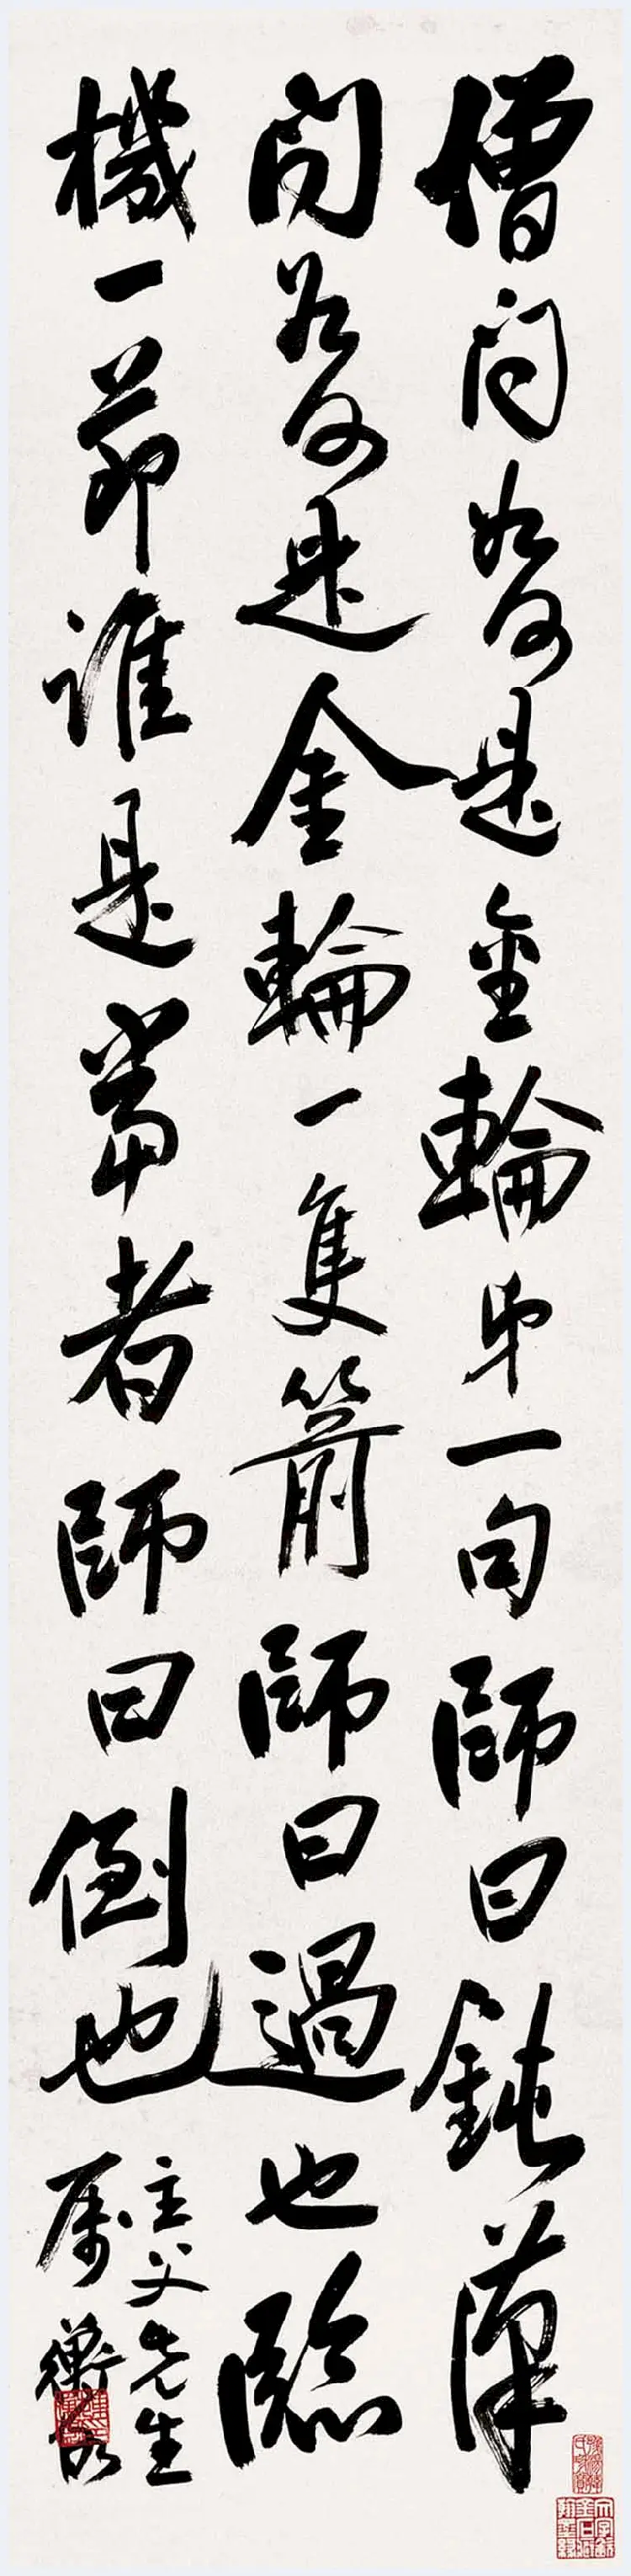 僧问如何是金輪弟一句師曰鈍漢
问如何是金輪一隻箭師曰過也臨
機一箭誰是當者師曰倒也
主父先生
属 衡